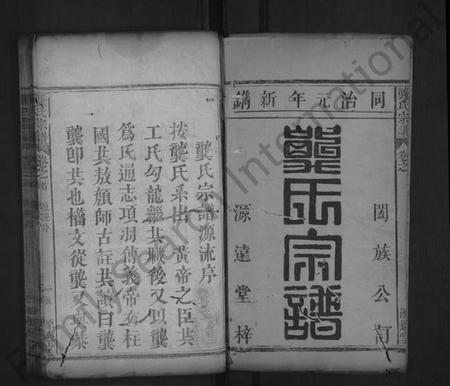 同治元年新鐫
闔族公訂
龔氏宗譜
源遠堂梓
龔氏宗譜
龔氏宗譜源流序
按龔氏系出 黃帝之臣共
工氏勾龍繼其職後又以龔
為氏通志項羽傳義帝
柱
國共敖顏師古註共讀曰龔
龔卽共也
文從龔
FamilySearch International